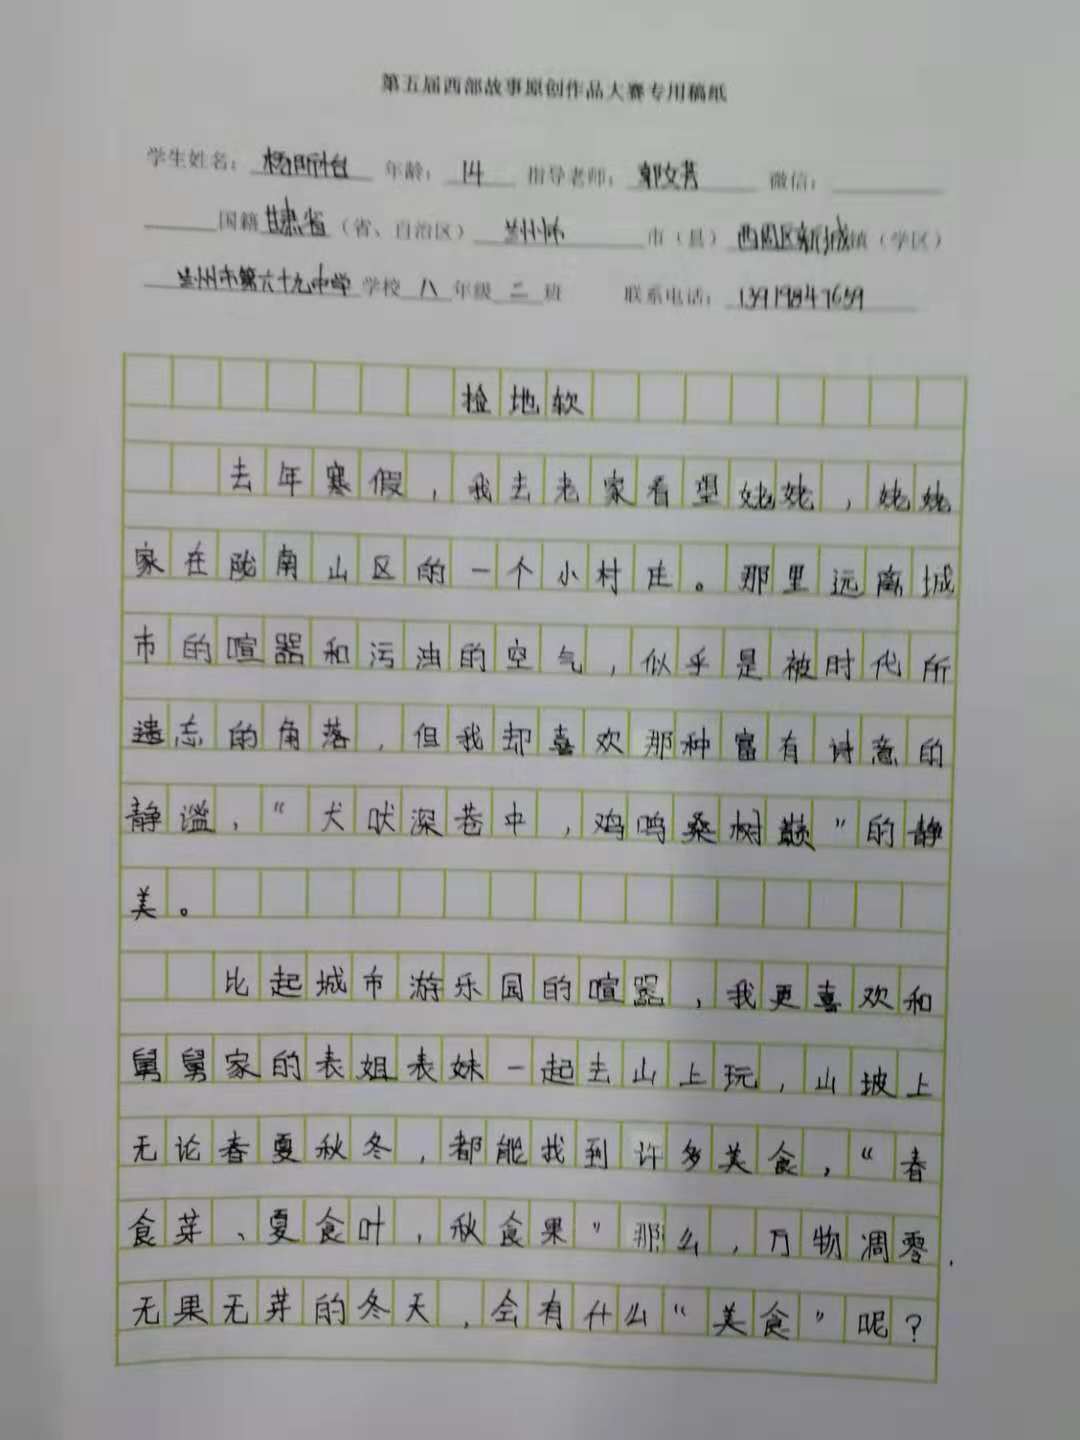 第五届西部故事原创作品大赛专用稿纸
学生姓名： 年龄：14 指导老师：郭文芳 微信：
国籍甘肃省（省、自治区）兰州市 市（县）西固区新城镇（学区）
兰州市第六十九中学学校八年级二班 联系电话：13919847659
捡地软
去年寒假，我去老家看望姥姥，姥姥
家在陇南山区的一个小村庄。那里远离城
市的喧嚣和污浊的空气，似乎是被时代所
遗忘的角落，但我却喜欢那种富有诗意的
静谧，“犬吠深巷中，鸡鸣桑树巅”的静
美。
比起城市游乐园的喧嚣，我更喜欢和
舅舅家的表姐表妹一起去山上玩，山坡上
无论春夏秋冬，都能找到许多美食，“春
食芽、夏食叶，秋食果”那么，万物凋零，
无果无芽的冬天，会有什么“美食”呢？